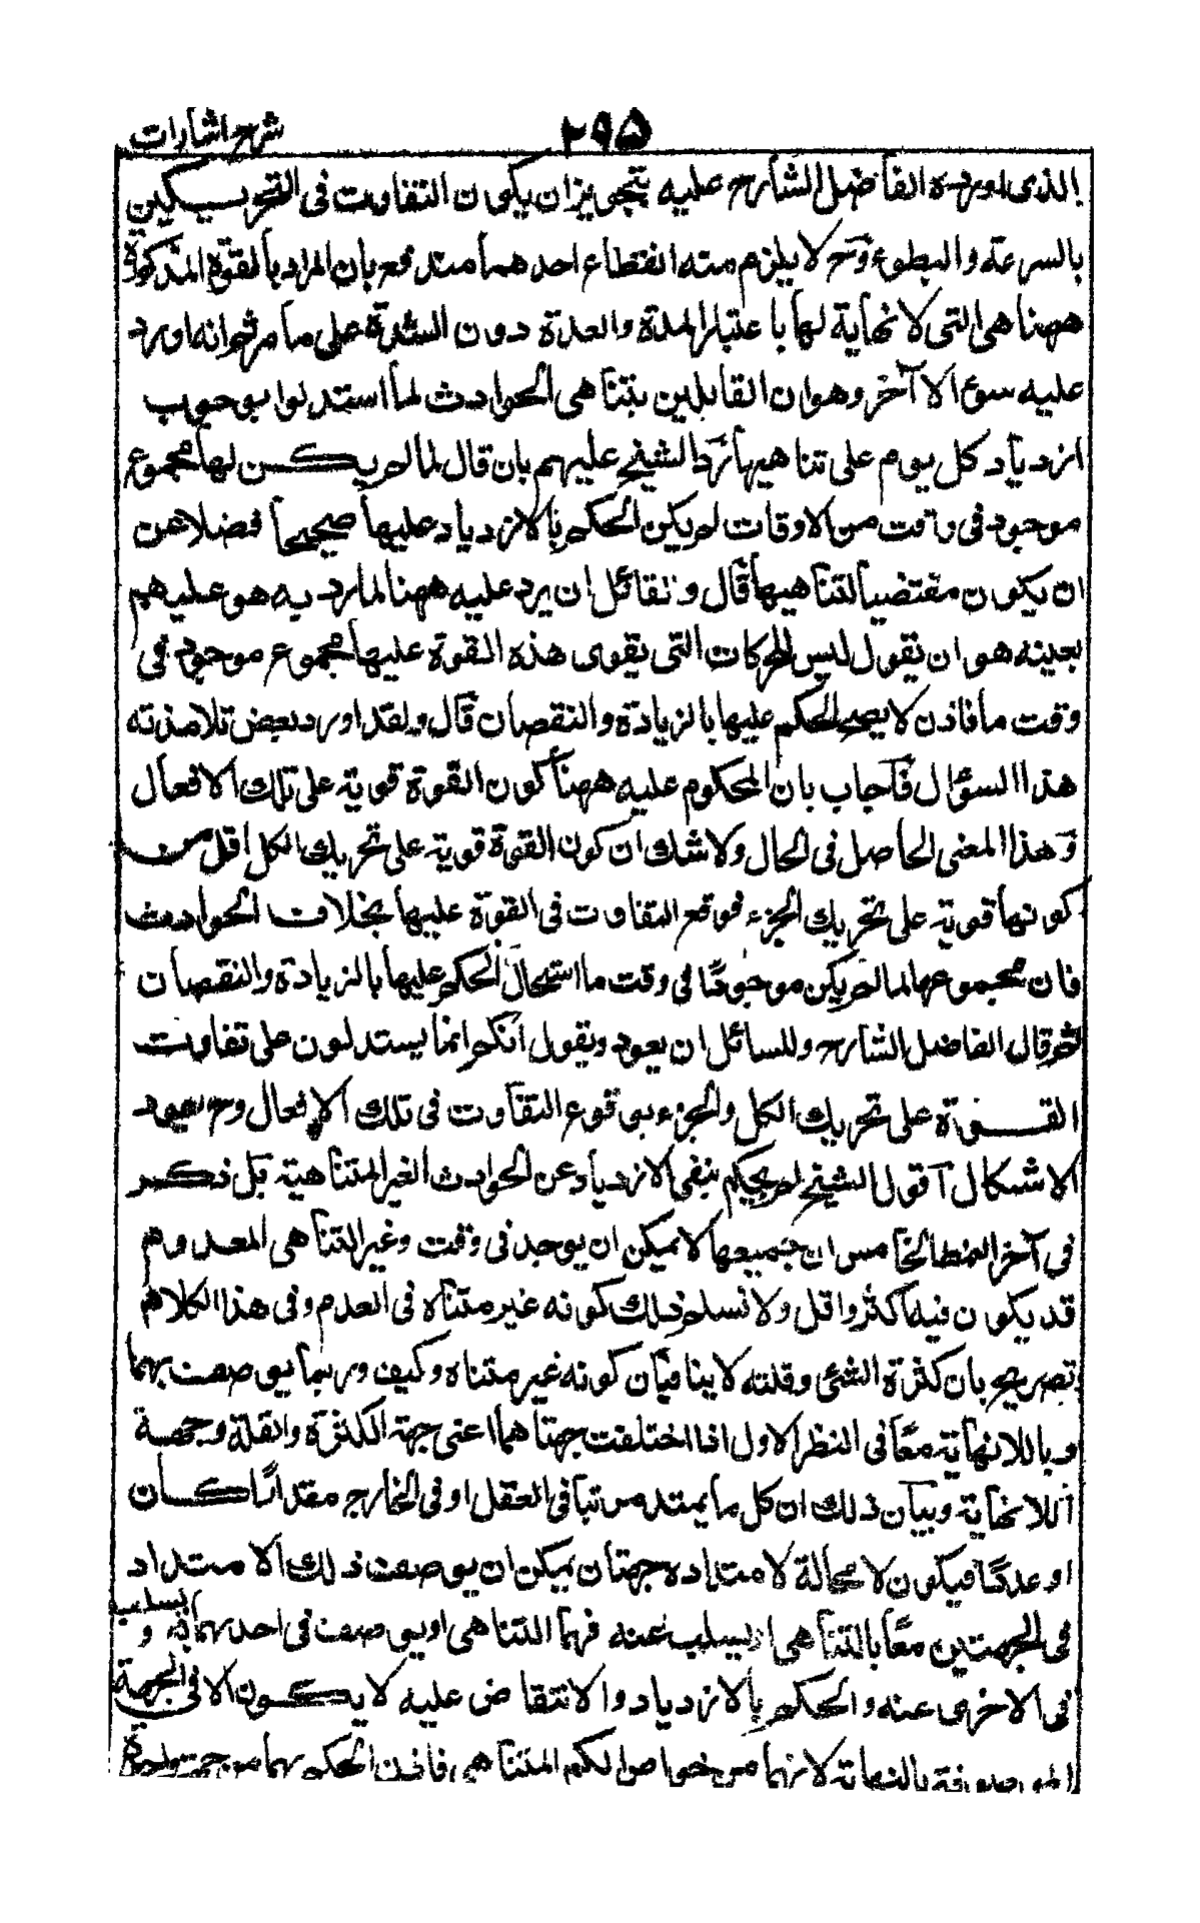 شرح اشارات
۲۹۵
الذى اورده الفاضل الشارح عليه بتجويزان يكون التفاوت فى التحريكين
بالسرعة والبطوء وح لا يلزم منه انقطاع احدهما مندفع بان المراد بالقوة المذكورة
ههنا هى التى لا نهاية لها باعتبار المدة والعدة دون الشدة على ما مر ثم انه اورد
عليه سؤالا آخر وهو ان القايلين بتناهى الحوادث لما استدلوا بوجوب
ازدياد كل يوم على تناهيها رد الشيخ عليهم بان قال لما لم يكن لها مجموع
موجود فى وقت من الاوقات لم يكن الحكم بالازدياد عليها صحيحا فضلا عن
ان يكون مقتضيا لتناهيها قال ولقائل ان يرد عليه ههنا لما رد به هو عليهم
بعينه هو ان تقول ليس للحركات التى يقوى هذه القوة عليها مجموع موجود فى
وقت ما فاذن لا يصح الحكم عليها بالزيادة والنقصان قال ولقد اورد بعض تلامذته
هذا السؤال فاجاب بان المحكوم عليه ههنا كون القوة قوية على تلك الافعال
وهذا المعنى الحاصل فى الحال ولا شك ان كون القوة قوية على تحريك الكل اقل من
كونها قوية على تحريك الجزء فوقع التفاوت فى القوة عليها بخلاف الحوادث
فان مجموعها لما لم يكن موجودًا فى وقت ما استحال الحكم عليها بالزيادة والنقصان
ثم قال الفاضل الشارح وللسائل ان يعود ويقول انكم انما يستدلون على تفاوت
القوة على تحريك الكل والجزء بوقوع التفاوت فى تلك الافعال وح يعود
الاشكال اقول الشيخ لم يحكم بنفى الازدياد عن الحوادث الغير المتناهية بل ذكر
فى آخر النمط الخامس ان جميعها لا يمكن ان يوجد فى وقت وغير المتناهى المعدوم
قد يكون فيه اكثر واقل ولا نسلم ذلك كونه غير متناه فى العدم وفى هذا الكلام
تصريح بان كثرة الشئ وقلته لا ينافيان كونه غير متناه وكيف وربما يوصف بهما
وباللانهاية معًا فى النظر الاول اذا اختلفت جهتاهما اعنى جهة الكثرة والقلة وجهة
اللانهاية وبيان ذلك ان كل ما يمتد مرتبا فى العقل او فى الخارج مقدارًا كان
او عددًا فيكون لا محالة لامتداده جهتان يمكن ان يوصف ذلك الامتداد
فى الجهتين معًا بالتناهى او يسلب عنه فيهما التناهى او يوصف فى احدهما به ويسلب
فى الاخرى عنه والحكم بالازدياد والانتقاض عليه لا يكون الا فى الجهة
الموصوفة بالنهاية لانهما من خواص الكم المتناهى فاذن الحكم بهما من جهة واحدة